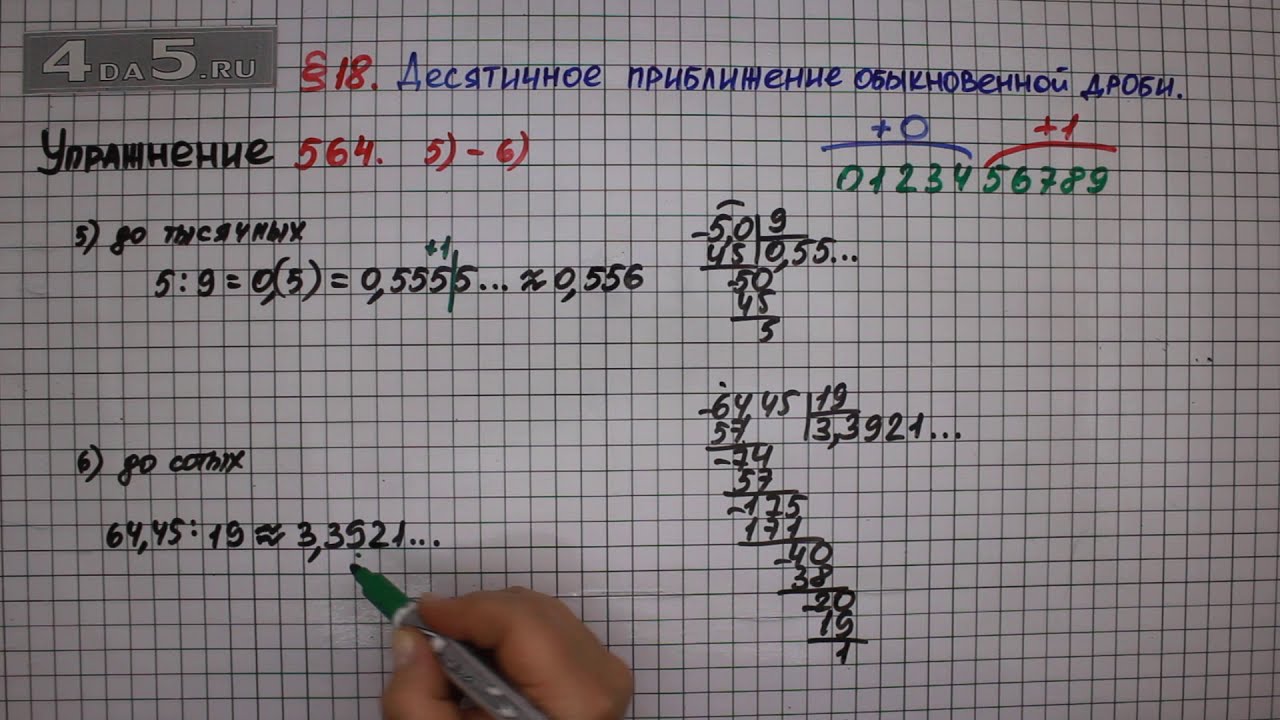 4DA5.RU
§18. Десятичное приближение обыкновенной дроби.
Упражнение 564. 5) - 6)
+0 +1
0 1 2 3 4 5 6 7 8 9
5) до тысячных
+1
5 : 9 = 0,(5) = 0,555|5... ≈ 0,556
-5,0 | 9
45 | 0,55...
-50
45
5
6) до сотых
64,45 : 19 ≈ 3,3921...
-64,45 | 19
57 | 3,3921...
-74
57
-175
171
-40
38
-20
19
1